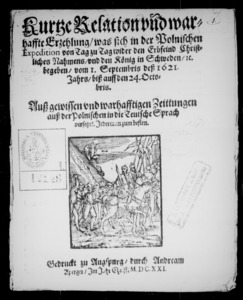 Kurtze Relation und war-
haffte Erzehlung / was sich in der Polnischen
Expedition von Tag zu Tag wider den Erbfeind Christ-
liches Nahmens / und den König in Schweden / ꝛc.
begeben / vom 1. Septembris deß 1621.
Jahrs / biß auff den 24. Octo-
bris.
Auß gewissen und warhafftigen Zeittungen
auß der Polnischen in die Teutsche Sprach
versetzt. Jederman zum besten.
Gedruckt zu Augspurg / durch Andream
Aperger / Im Jahr M. DC. XXI.